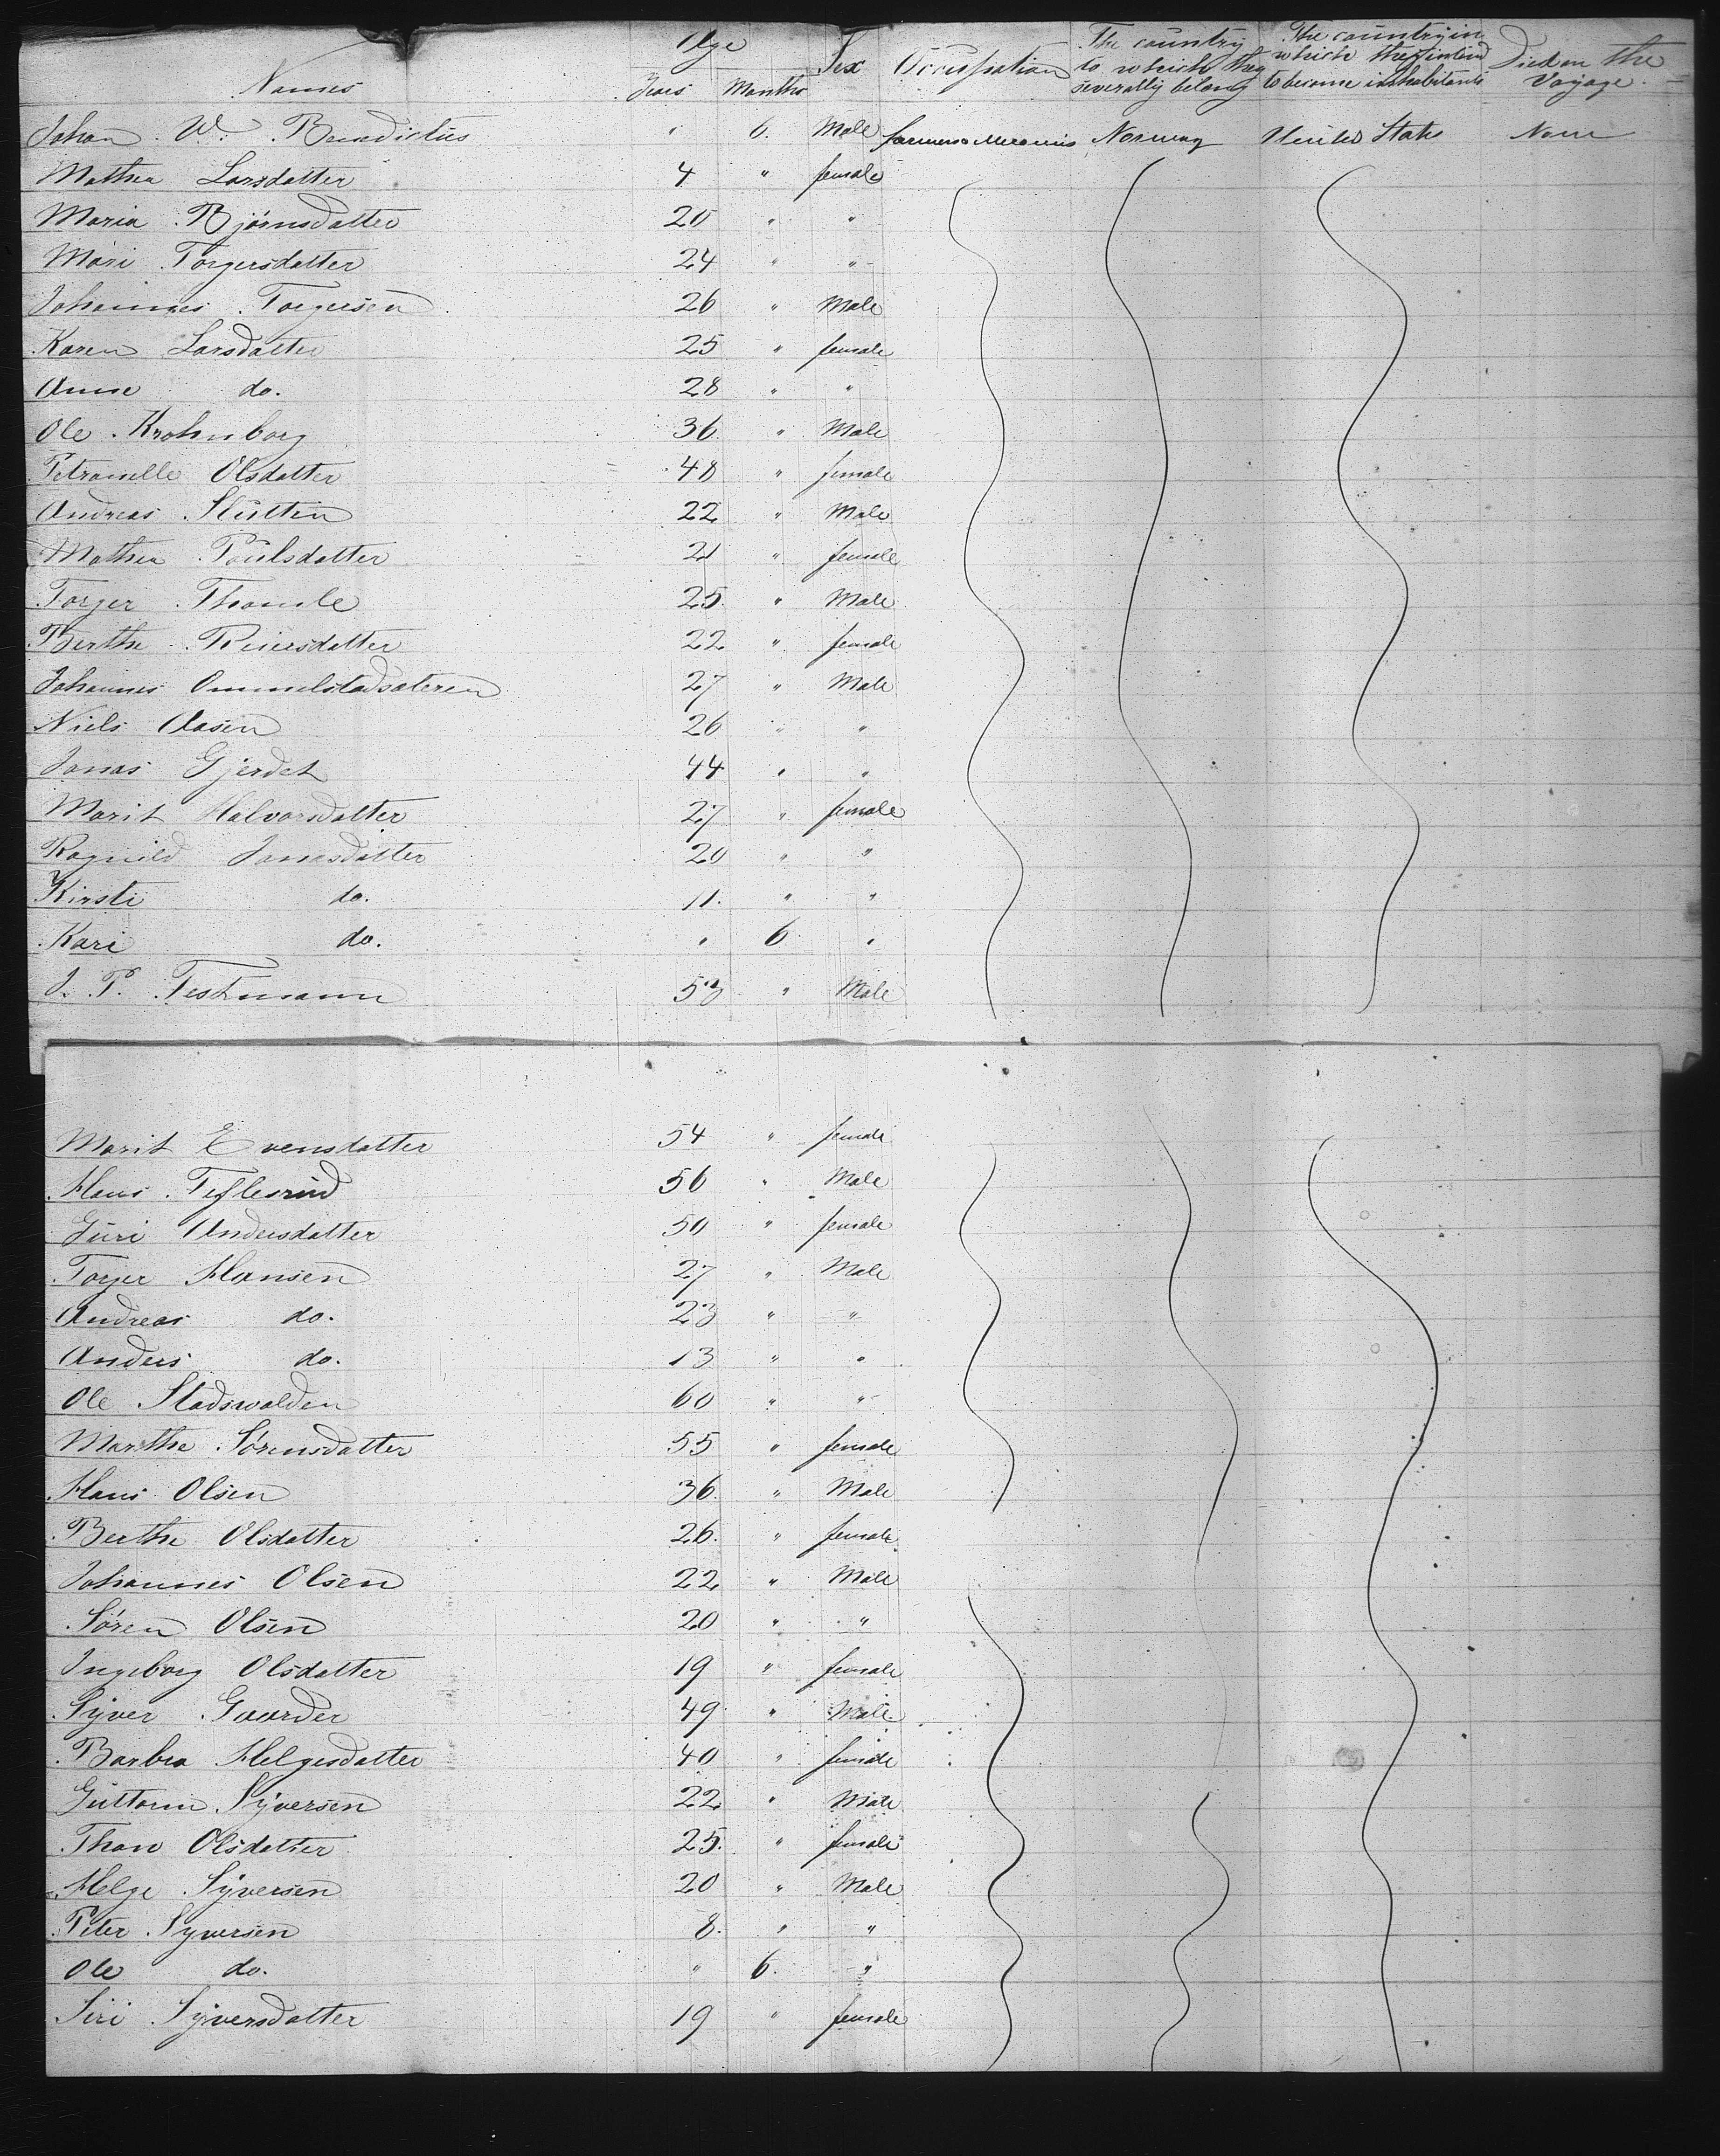 Names Age Years Months Sex Occupation The country to which they severally belong The country in which they intend to become inhabitants Died on the Voyage
Johan W. Benedictus " 6. Male farmers & Norway United States None
Mathea Larsdatter 4 " female
Maria Bjørnsdatter 20 " "
Mari Torgersdatter 24 " "
Johannes Torgersen 26 " Male
Karen Larsdatter 25 " female
Anne do. 28 " "
Ole Krohnborg 36 " Male
Petronelle Olsdatter 48 " female
Andreas 22 " Male
Mathea Paulsdatter 21 " female
Torger Thomle 25 " Male
Berthe Reiersdatter 22 " female
Johannes Ommelstadsateren 27 " Male
Niels Olasen 26 " "
Jonas Gjerdet 44 " "
Marit Halvorsdatter 27 " female
Ragnild Jonasdatter 20 " "
Kirsti do. 11. " "
Kari do. " 6 "
J. P. Testmann 53 " Male
Marit Evensdatter 54 " female
Hans Teflesrud 56 " Male
Guri Andersdatter 50 " female
Torger Hansen 27 " Male
Andreas do. 23 " "
Anders do. 13 " "
Ole Stadswolden 60 " "
Marthe Sørensdatter 55 " female
Hans Olsen 36 " Male
Berthe Olsdatter 26. " female
Johannes Olsen 22 " Male
Søren Olsen 20 " "
Ingeborg Olsdatter 19 " female
Syver Gaarder 49 " Male
Barbra Helgesdatter 40 " female
Guttorm Syversen 22 " Male
Thon Olsdatter 25. " female
Helge Syversen 20 " Male
Peter Syversen 8. " "
Ole do. " 6. "
Siri Syversdatter 19 " female